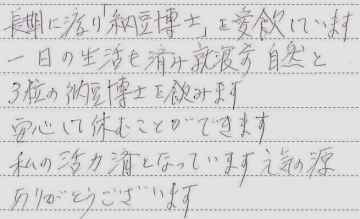 長期に渡り「納豆博士」を愛飲しています
一日の生活を済み就寝前 自然と
3粒の納豆博士を飲みます
安心して休むことができます
私の活力源となっています 元気の源
ありがとうございます